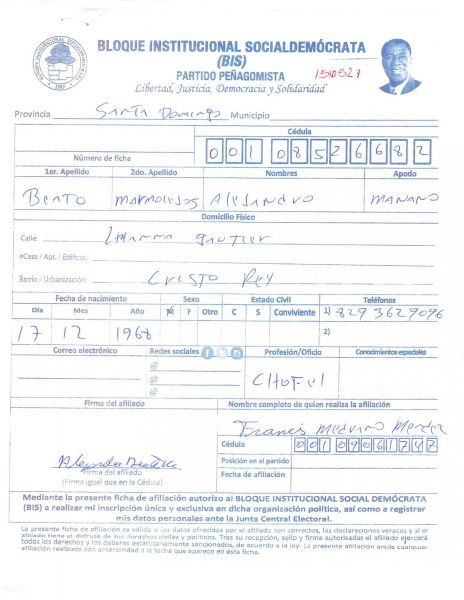 BLOQUE INSTITUCIONAL SOCIALDEMÓCRATA
(BIS)
PARTIDO PEÑAGOMISTA
Libertad, Justicia, Democracia y Solidaridad
Provincia Santo Domingo Municipio
Cédula
Número de ficha 001 0852668 2
1er. Apellido 2do. Apellido Nombres Apodo
Alejandro
Domicilio Físico
Calle:
#Casa / Apt. / Edificio:
Barrio / Urbanización: Cristo Rey
Fecha de nacimiento Sexo Estado Civil Teléfonos
Día Mes Año M F Otro C S Conviviente 1) 829 3629096
2)
17 12 1968
Correo electrónico Redes sociales Profesión/Oficio Conocimientos especiales
@
@ CHOFUL
@
Firma del afiliado Nombre completo de quien realiza la afiliación
Francis Medrano Mendez
Cédula 001 09061747
Posición en el partido
Firma del afiliado Fecha de afiliación
(Firma igual que en la Cédula)
Mediante la presente ficha de afiliación autorizo al BLOQUE INSTITUCIONAL SOCIAL DEMÓCRATA
(BIS) a realizar mi inscripción única y exclusiva en dicha organización política, así como a registrar
mis datos personales ante la Junta Central Electoral.
La presente ficha de afiliación es válida si los datos ofrecidos por el afiliado son correctos, las declaraciones veraces y si el
afiliado tiene el disfrute de sus derechos civiles y políticos. Tras su recepción, sello y firma autorizada el afiliado ejercerá
todos los derechos y los deberes estatutariamente sancionados, de acuerdo a la ley. La presente afiliación anula cualquier
afiliación realizada con anterioridad a la fecha que aparece en esta ficha.